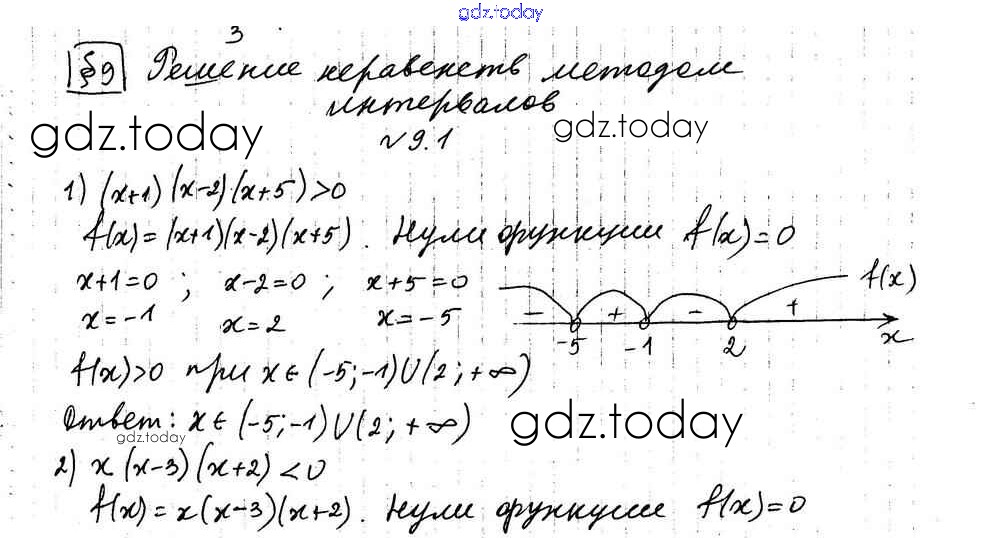 gdz.today
3
§9 Решение неравенств методом
интервалов
gdz.today
gdz.today
№9.1
1) (x+1)(x-2)(x+5)>0
f(x)=(x+1)(x-2)(x+5). Нули функции f(x)=0
x+1=0 ; x-2=0 ; x+5=0
x=-1 x=2 x=-5
f(x)
- + - +
-5 -1 2 x
f(x)>0 при x∈(-5;-1)∪(2;+∞)
Ответ: x∈(-5;-1)∪(2;+∞)
gdz.today
gdz.today
2) x(x-3)(x+2)<0
f(x)=x(x-3)(x+2). Нули функции f(x)=0